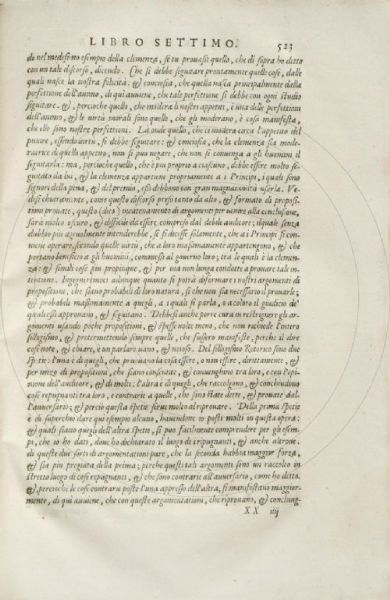 LIBRO SETTIMO. 523
do nel medesimo esempio della clemenza, se tu prouassi quello, che di sopra ho detto
con un tale discorso, dicendo. Che si debbe seguitare prontamente quelle cose, dalle
quali nasce la nostra felicità: & conciosia, che quella nasca principalmente dalla
perfettione dell'animo, di qui auuiene, che tale perfettione si debbe con ogni studio
seguitare. &, percioche quello, che modera li nostri appetiti, è una delle perfettioni
dell'animo, & le uirtù morali sono quelle, che gli moderano, è cosa manifesta,
che elle sono nostre perfettioni. La onde quello, che modera circa l'appetito del
punire, essendo uirtù, si debbe seguitare: & conciosia, che la clemenza sia mode-
ratrice di quello appetito, non si può negare, che non si conuenga a gli huomini il
seguitarla: ma, percioche quello, che è più proprio a ciascuno, debbe essere molto se
guitato da lui, & la clemenza appartiene propriamente a i Principi, i quali sono
signori della pena, & del premio, essi debbono con gran magnanimità usarla. Ve-
desi chiaramente, come questo discorso preso tanto da alto, & formato di proposi-
tioni prouate, questo (dico) incatenamento di argomenti per uenire alla conclusione,
sarà molto oscuro, & difficile da essere compreso dal debole auditore; il quale senza
dubbio più ageuolmente intenderebbe, se si dicesse solamente, che a i Principi si con
uiene operare, secondo quelle uirtù, che a loro massimamente appartengono, & che
portano beneficio a gli huomini, commessi al gouerno loro; tra le quali è la clemen-
za: & simili cose più propinque, & per una non lunga condotte a prouare tale in-
tentione. Ingegneremoci adunque quanto si potrà di formare i nostri argomenti di
propositioni, che siano probabili di loro natura, si che non sia necessario il prouarle;
& probabili massimamente a quegli, a i quali si parla, o a coloro il giudicio de'
quali essi approuano, & seguitano. Debbesi anche porre cura in restrignere gli ar-
gomenti usando poche propositioni, & spesse uolte meno, che non richiede l'intero
sillogismo, & pretermettendo sempre quelle, che fussero manifeste, perche il dire
cose note, & chiare, è un parlare uano, & noioso. Del sillogismo Retorico sono due
spetie: l'una è di quegli, che prouano la cosa essere, o non essere, dirittamente: &
per mezo di propositioni, che siano consentite, & conuenghino tra loro, & con l'opi-
nione dell'auditore, & di molti: l'altra è di quegli, che raccolgono, & conchiudono
cosi repugnanti tra loro, & contrarie a quelle, che sono state dette, & prouate dal
l'auuersario; & perciò questa spetie serue molto al riprouare. Della prima spetie
è di superchio dare qui esempio alcuno, hauendone io posti molti in questa opera;
& quali siano quegli dell'altra spetie, si può facilmente comprendere per gli esem-
pi, che io ho dati, doue ho dichiarato il luogo di ripugnanti, & anche altroue.
di queste due sorti di argomentationi pare, che la seconda habbia maggior forza,
& sia più pregiata della prima; perche questi tali argomenti sono un raccolto in
stretto luogo di cose repugnanti, & che sono contrarie all'auuersario, come ho detto.
&, percioche le cose contrarie poste l'una appresso dell'altra, si manifestano maggior-
mente, di qui auuiene, che con queste argomentationi, che riprouano, & conchiug-
XX iiij